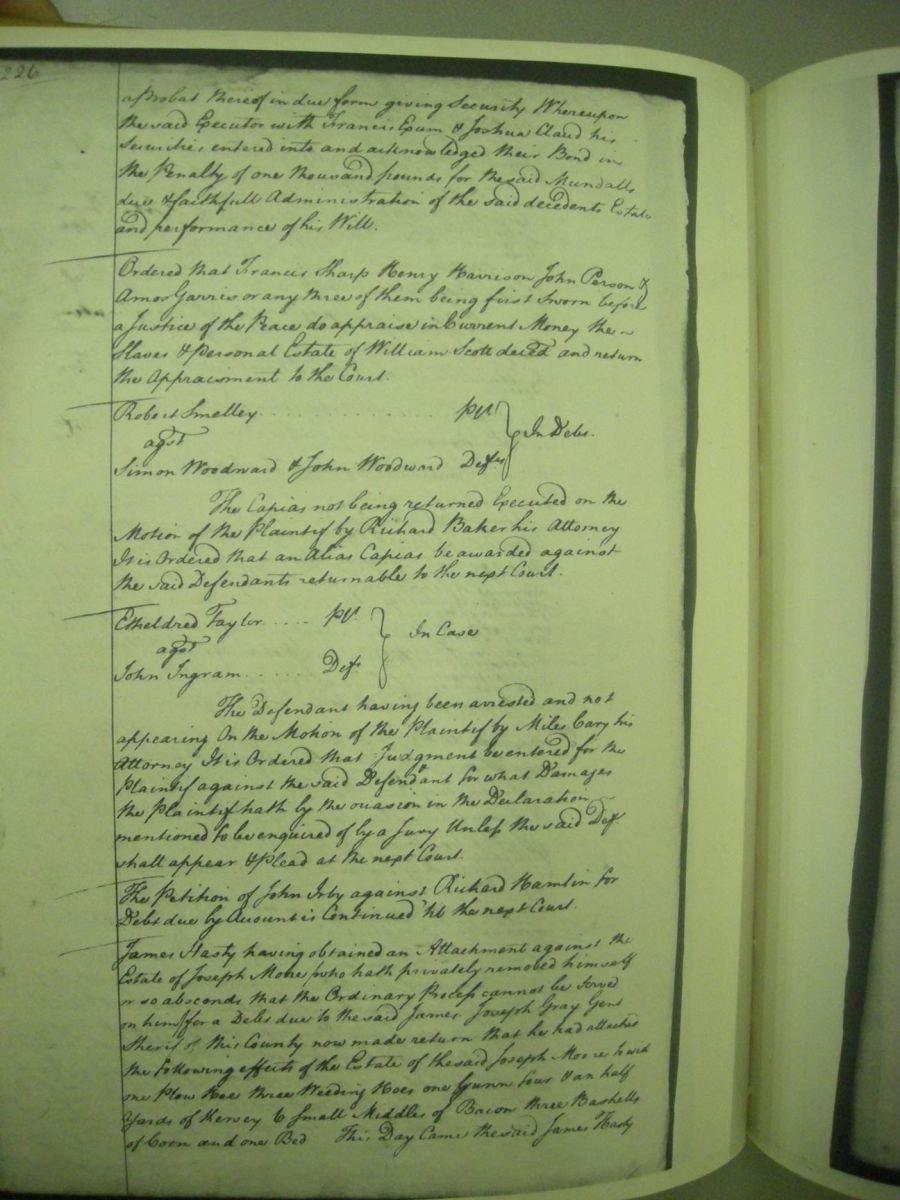 226
a Probat thereof in due form giving Security Whereupon
the said Executor with Francis Exum & Joshua Claud his
Securities entered into and acknowledged their Bond in
the Penalty of one thousand pounds for the said Mundalls
due & faithfull Administration of the said decedents Estate
and performance of his Will.
Ordered that Francis Sharp Henry Harrison John Person &
Amos Garris or any three of them being first Sworn before
a Justice of the Peace do appraise in Current Money the
Slaves & personal Estate of William Scott deced and return
the Appraisment to the Court.
Robert Smelley . . . . . . . . . . . . . . pltf.
agst
In Debt.
Simon Woodward & John Woodward Defts
The Capias not being returned Executed on the
Motion of the Plaintif by Richard Baker his Attorney
It is Ordered that an Alias Capias be awarded against
the said Defendants returnable to the next Court.
Etheldred Taylor . . . . pltf.
agst
In Case
John Ingram . . . . . . Deft.
The Defendant having been arrested and not
appearing On the Motion of the Plaintif by Miles Cary his
Attorney It is Ordered that Judgment be entered for the
Plaintif against the said Defendant for what Damages
the Plaintif hath by the occasion in the Declaration
mentioned to be enquired of by a Jury Unless the said Deft.
shall appear & plead at the next Court.
The Petition of John Irby against Richard Hamlin for
Debt due by Account is Continued 'till the next Court.
James Hasty having obtained an Attachment against the
Estate of Joseph More (who hath privately removed himself
or so absconds that the Ordinary Process cannot be Served
on him) for a Debt due to the said James Joseph Gray Gent
Sherif of this County now made return that he had attached
the following effects of the Estate of the said Joseph Moore to wit
one Plow Hoe three Weeding Hoes one Gunn four & an half
Yards of Kersey 6 Small Middles of Bacon three Bushells
of Corn and one Bed This Day Came the said James Hasty